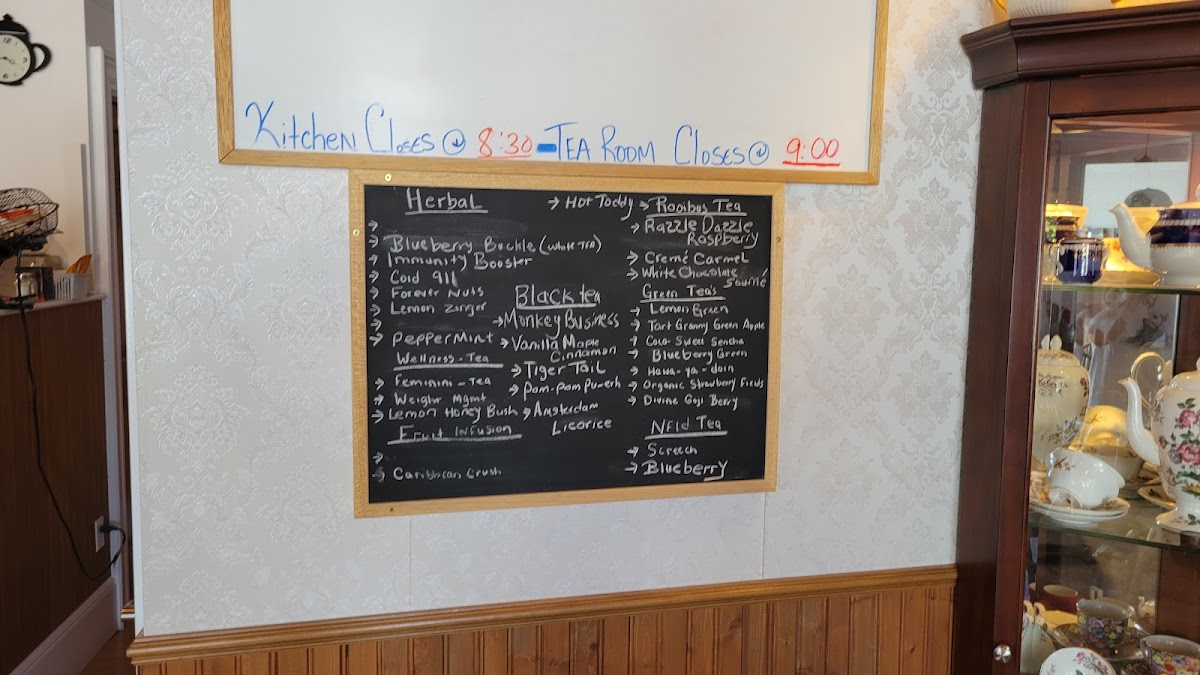 Kitchen Closes @ 8:30 - TEA ROOM Closes @ 9:00
Herbal
→
→ Blueberry Buckle (White TEA)
→ Immunity Booster
→ Cold 911
→ Forever Nuts
→ Lemon Zinger
→
→ PepperMint
Wellness-Tea
→ Feminini-Tea
→ Weight Mgmt
→ Lemon Honey Bush
Fruit Infusion
→
→ Caribbean Crush
→ Hot Toddy
Black tea
→ Monkey Business
→ Vanilla Maple
Cinnamon
→ Tiger Tail
→ Pom-pom Pu-erh
→ Amsterdam
Licorice
→ Rooibus Tea
→ Razzle Dazzle
Raspberry
→ Cremé Carmel
→ White Chocolate
Soufflé
Green Tea's
→ Lemon Green
→ Tart Granny Green Apple
→ Coco-Sweet Sencha
→ Blueberry Green
→ Hawa-ya-doin
→ Organic Strawberry Fields
→ Divine Goji Berry
Nfld Tea
→ Screech
→ Blueberry